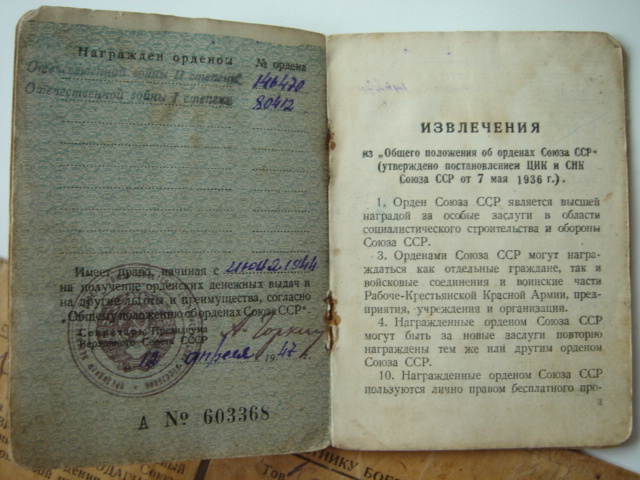 Награжден орденом № ордена
Отечественной войны II степени 146470
Отечественной войны I степени 80412
Имеет право, начиная с июня 1944
на получение орденских денежных выдач и
на другие льготы и преимущества, согласно
„Общему положению об орденах Союза ССР“
Секретарь Президиума
Верховного Совета СССР А. Горкин
12 апреля 1947 г.
А № 603368
ИЗВЛЕЧЕНИЯ
из „Общего положения об орденах Союза ССР“
(утверждено постановлением ЦИК и СНК
Союза ССР от 7 мая 1936 г.).
1. Орден Союза ССР является высшей
наградой за особые заслуги в области
социалистического строительства и обороны
Союза ССР.
3. Орденами Союза ССР могут награ-
ждаться как отдельные граждане, так и
войсковые соединения и воинские части
Рабоче-Крестьянской Красной Армии, пред-
приятия, учреждения и организации.
4. Награжденные орденом Союза ССР
могут быть за новые заслуги повторно
награждены тем же или другим орденом
Союза ССР.
10. Награжденные орденом Союза ССР
пользуются лично правом бесплатного про-
3